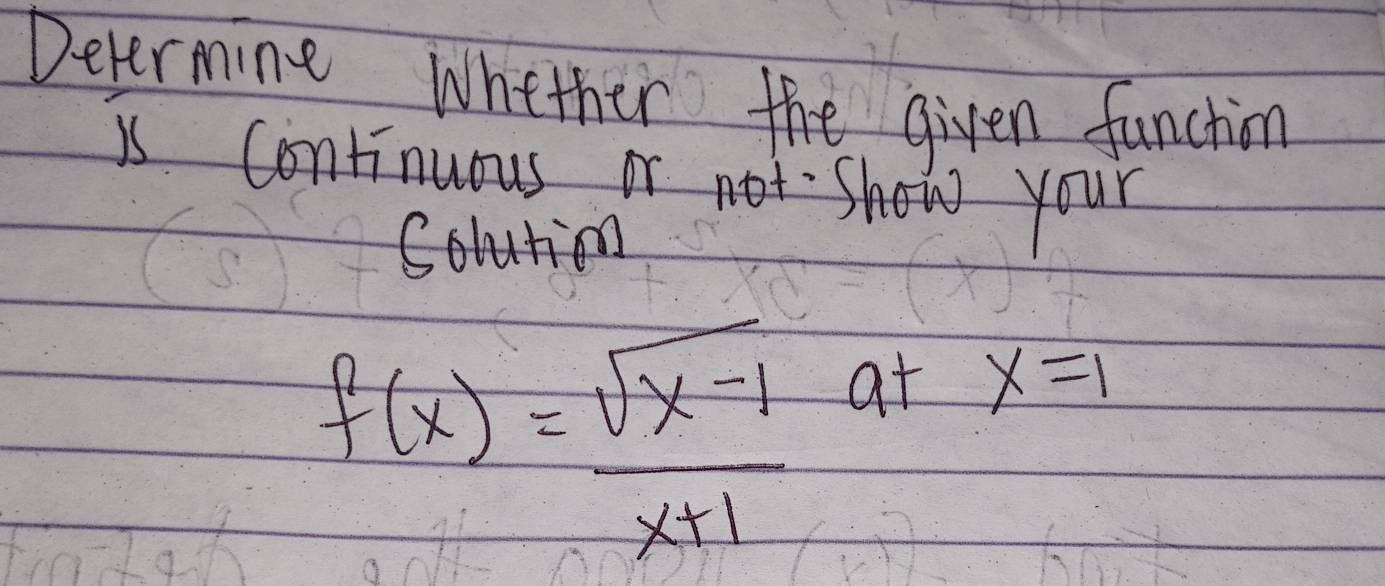 Determine Whether the given function
is Continuous or not. Show your
Solution
f(x) = √x-1 at x=1
x+1